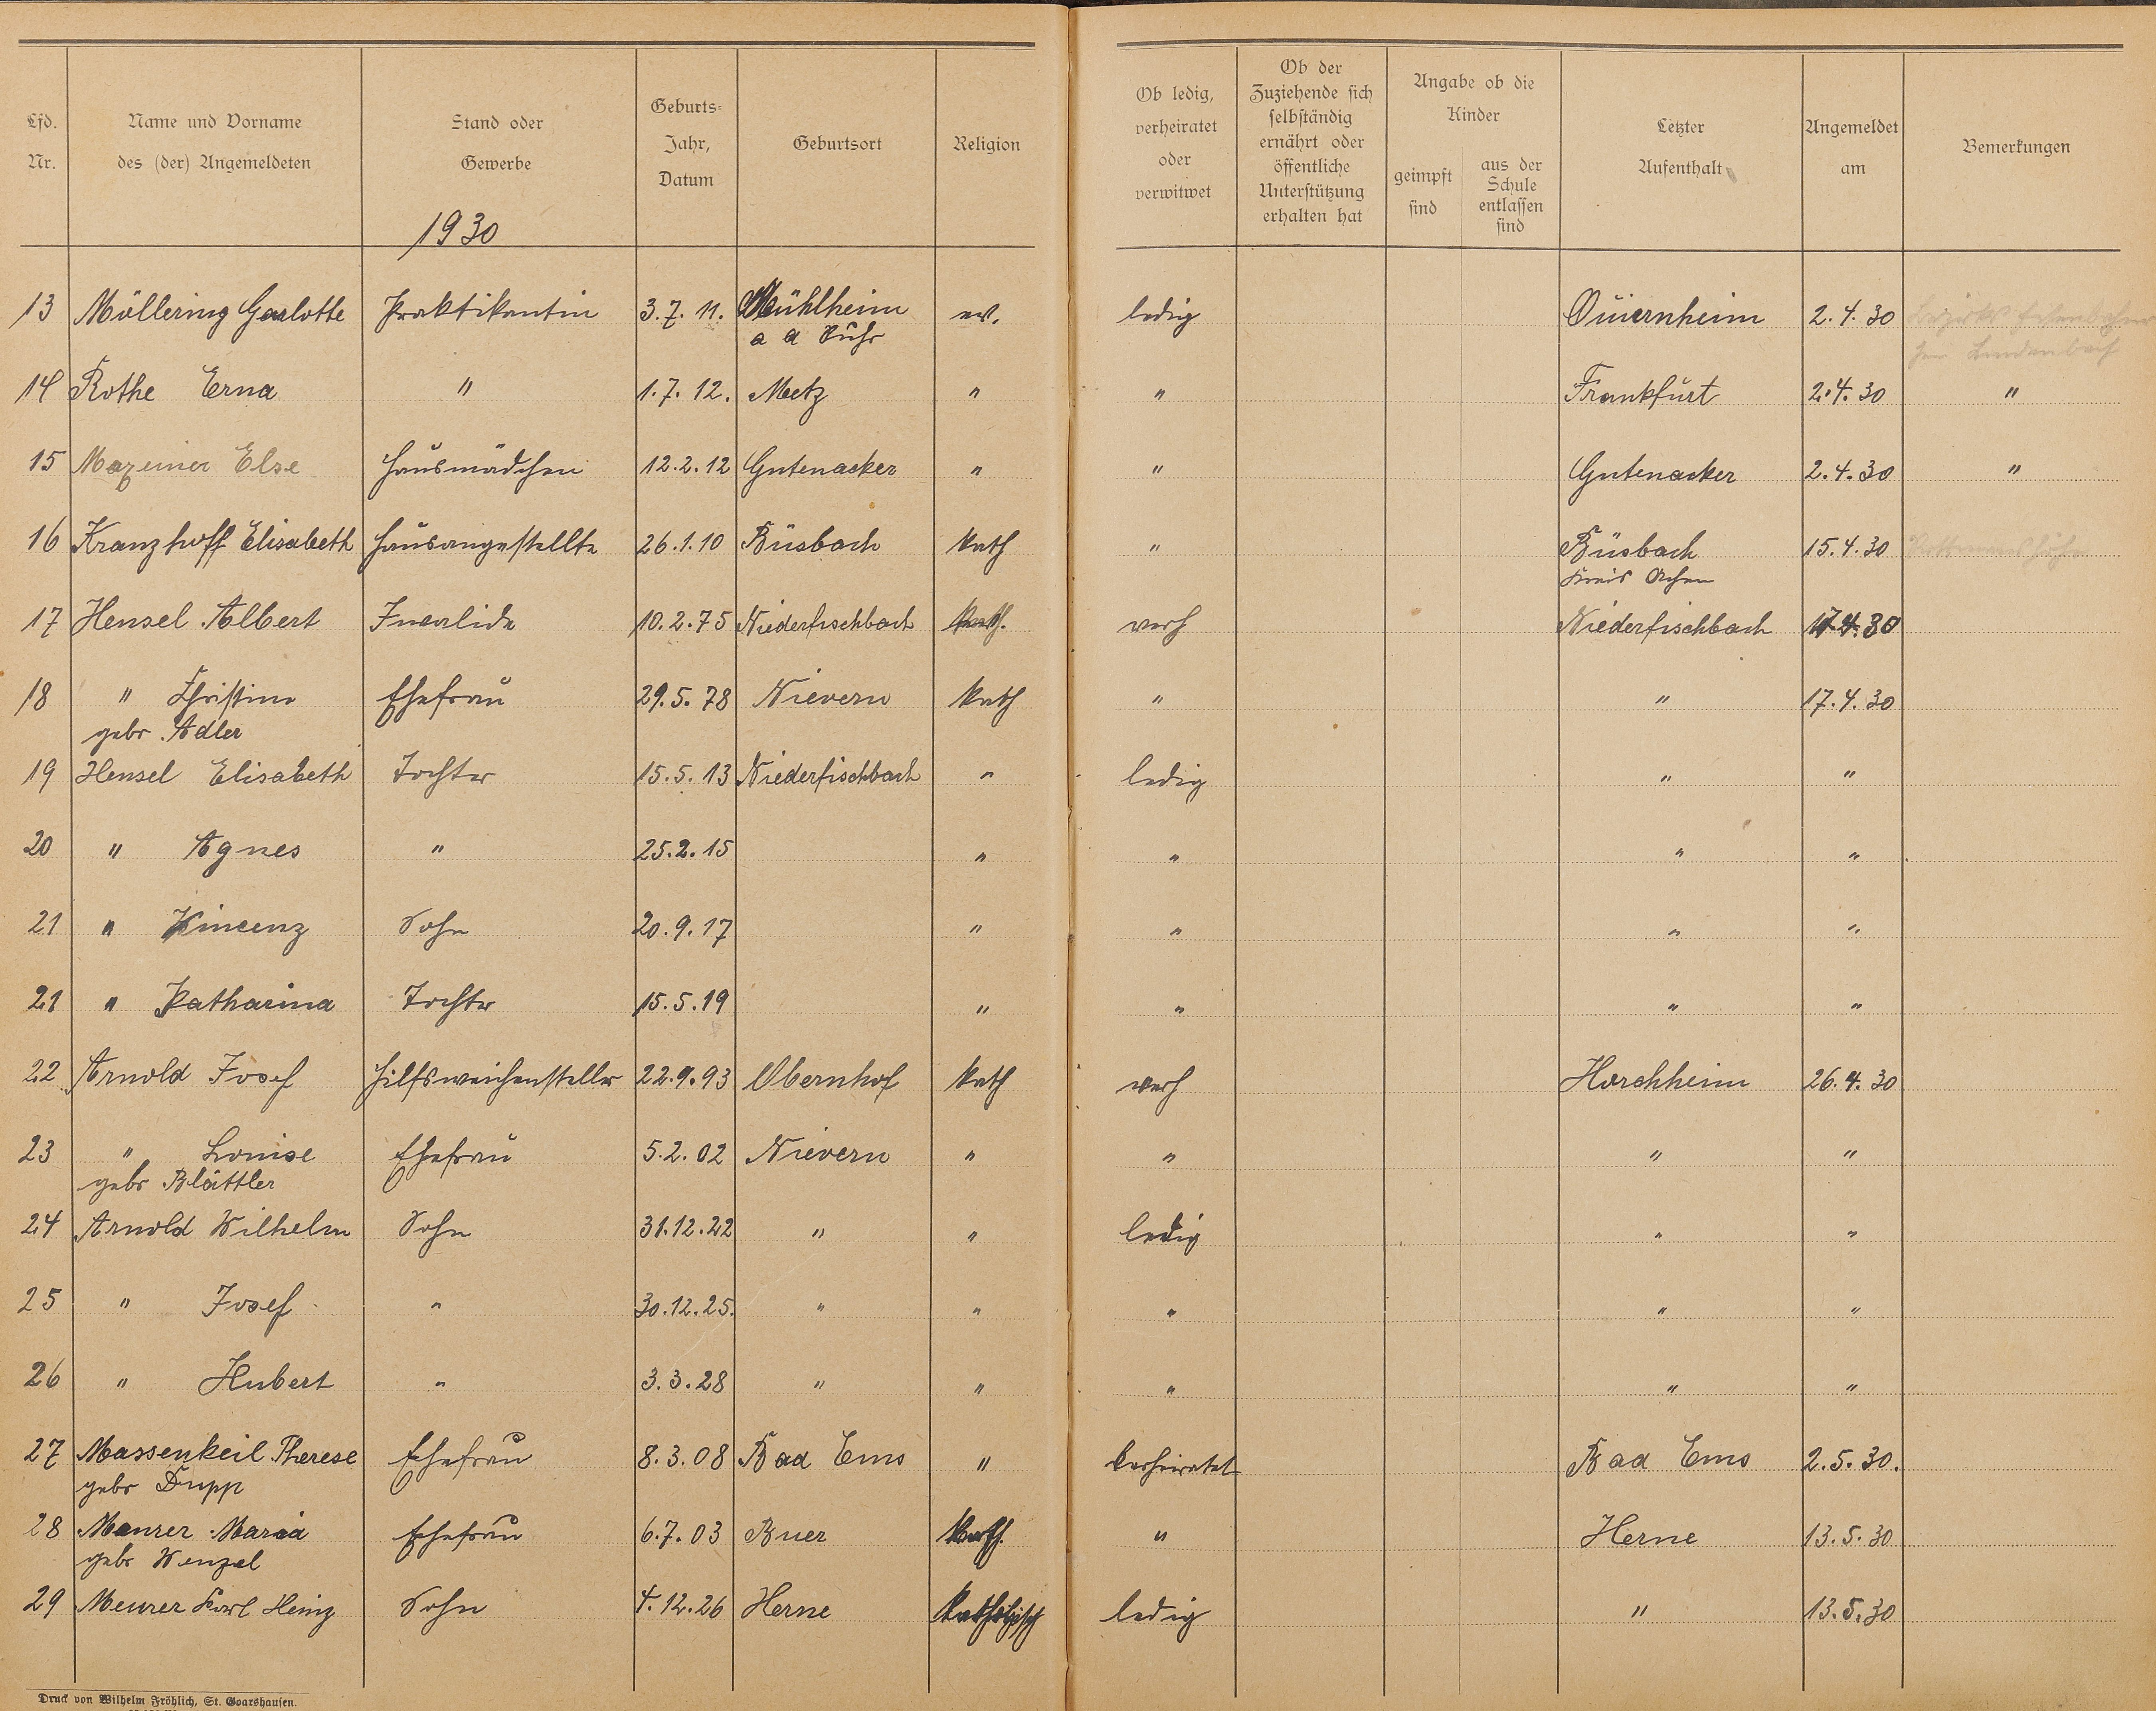 Lfd. Nr.
Name und Vorname des (der) Angemeldeten
Stand oder Gewerbe
Geburts-Jahr, Datum
Geburtsort
Religion
Ob ledig, verheiratet oder verwitwet
Ob der Zuziehende sich selbständig ernährt oder öffentliche Unterstützung erhalten hat
Angabe ob die Kinder
geimpft sind
aus der Schule entlassen sind
Letzter Aufenthalt
Angemeldet am
Bemerkungen
1930
13 Möllering Garlotte Praktikantin 3.7.11. Mühlheim ev. ledig 2.4.30
a d Ruhr
14 Rothe Erna " 1.7.12. Metz " " Frankfurt 2.4.30 "
15 Mazeiner Else Hausmädchen 12.2.12 Gutenacker " " Gutenacker 2.4.30 "
16 Kranzhoff Elisabeth Hausangestellte 26.1.10 Büsbach Kath " Büsbach 15.4.30
Kreis Achen
17 Hensel Albert Invalide 10.2.75 Niederfischbach Kath. verh Niederfischbach 17.4.30
18 " Christine Ehefrau 29.5.78 Nievern Kath " " 17.4.30
gebr Adler
19 Hensel Elisabeth Tochter 15.5.13 Niederfischbach " ledig " "
20 " Agnes " 25.2.15 " " " "
21 " Vincenz Sohn 20.9.17 " " " "
21 " Katharina Tochter 15.5.19 " " " "
22 Arnold Josef Hilfsweichensteller 22.9.93 Obernhof Kath verh Horchheim 26.4.30
23 " Louise Ehefrau 5.2.02 Nievern " " " "
gebr Blättler
24 Arnold Wilhelm Sohn 31.12.22 " " ledig " "
25 " Josef " 30.12.25. " " " " "
26 " Hubert " 3.3.28 " " " " "
27 Massenkeil Therese Ehefrau 8.3.08 Bad Ems " verheiratet Bad Ems 2.5.30.
gebr Dupp
28 Meurer Maria Ehefrau 6.7.03 Buer Kath. " Herne 13.5.30
gebr Wenzel
29 Meurer Karl Heinz Sohn 4.12.26 Herne Katholisch ledig " 13.5.30
Druck von Wilhelm Fröhlich, St. Goarshausen.